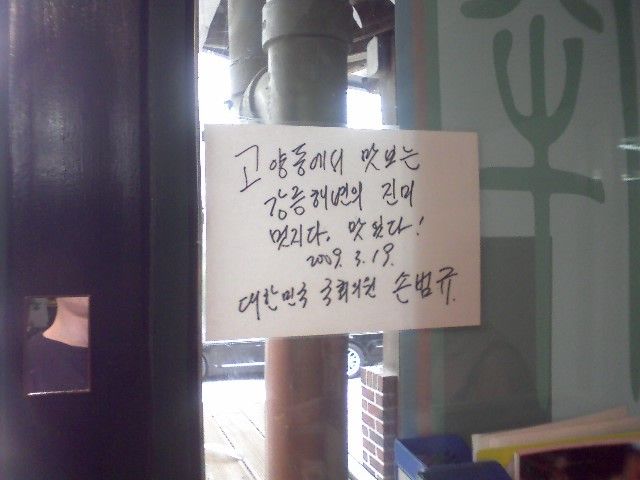 고양동에서 맛보는
강릉해변의 진미
멋지다. 맛있다!
2009. 3. 19.
대한민국 국회의원 손범규.